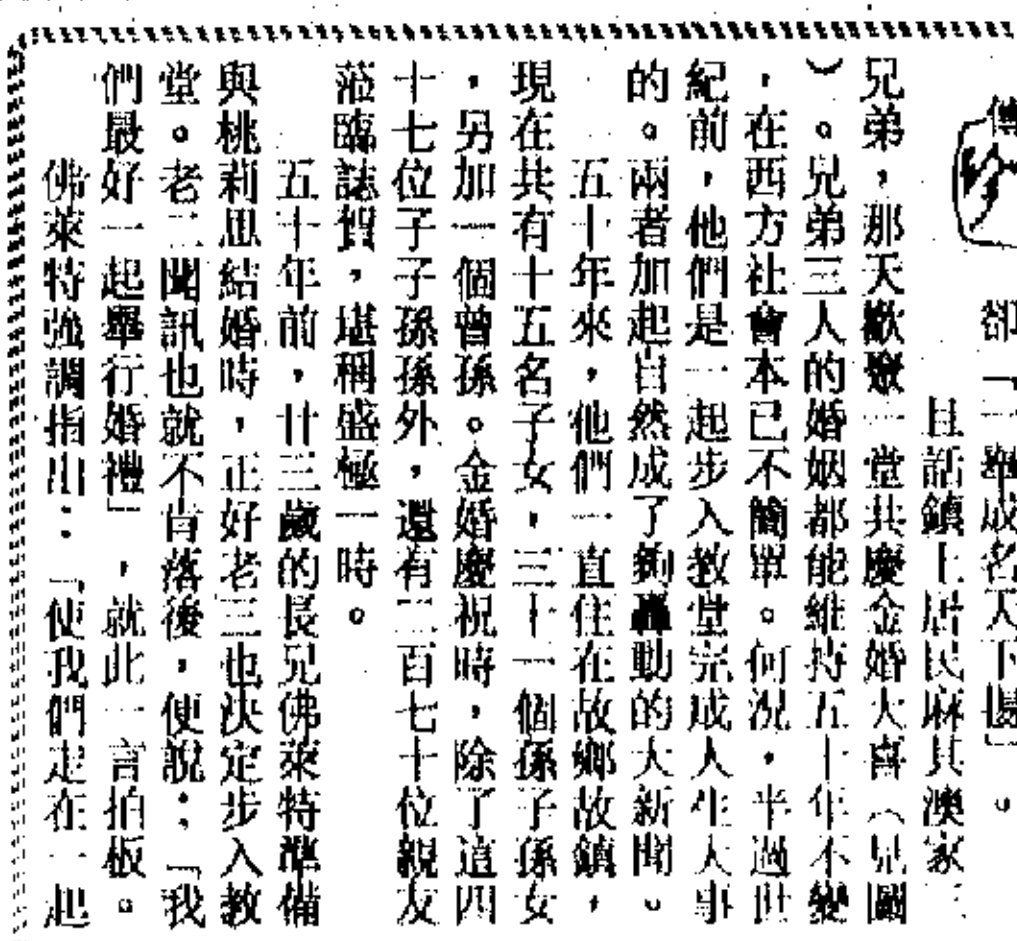 傳
卻「一舉成名天下揚」。
且話鎮上居民麻其澳家三
兄弟，那天歡聚一堂共慶金婚大喜（見圖
）。兄弟三人的婚姻都能維持五十年不變
，在西方社會本已不簡單。何況，半過世
紀前，他們是一起步入教堂完成人生大事
的。兩者加起自然成了夠轟動的大新聞。
五十年來，他們一直住在故鄉故鎮，
現在共有十五名子女，三十一個孫子孫女
，另加一個曾孫。金婚慶祝時，除了這四
十七位子子孫孫外，還有二百七十位親友
蒞臨誌賀，堪稱盛極一時。
五十年前，廿三歲的長兄佛萊特準備
與桃莉思結婚時，正好老三也決定步入教
堂。老二聞訊也就不肯落後，便說：「我
們最好一起舉行婚禮」，就此一言拍板。
佛萊特強調指出：「使我們走在一起